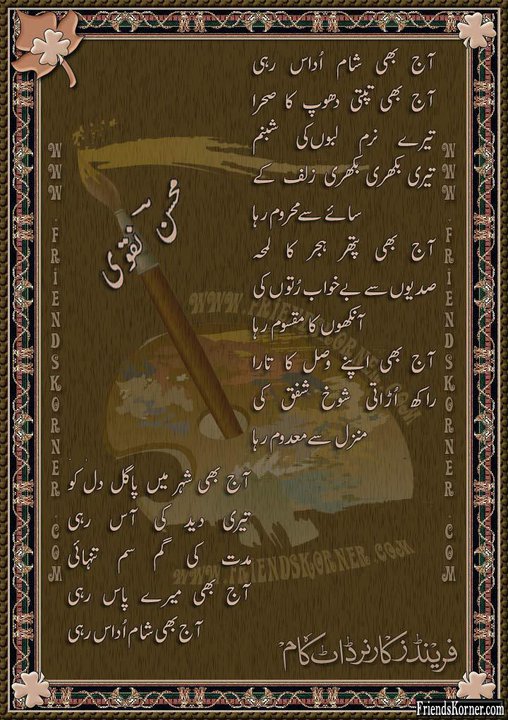 آج بھی شام اُداس رہی
آج بھی تپتی دھوپ کا صحرا
تیرے نرم لبوں کی شبنم
تیری بکھری بکھری زلف کے
سائے سے محروم رہا
آج بھی پتھر ہجر کا لمحہ
صدیوں سے بے خواب رُتوں کی
آنکھوں کا مقسوم رہا
آج بھی اپنے وصل کا تارا
راکھ اُڑاتی شوخ شفق کی
منزل سے معدوم رہا
آج بھی شہر میں پاگل دل کو
تیری دید کی آس رہی
مدت کی گم سم تنہائی
آج بھی میرے پاس رہی
آج بھی شام اُداس رہی
محسن نقوی
فرینڈز کارنر ڈاٹ کام
WWW.FRIENDSKORNER.COM
WWW.FRIENDSKORNER.COM
WWW.FRIENDSKORNER.COM
WWW.FRIENDSKORNER.COM
FriendsKorner.com